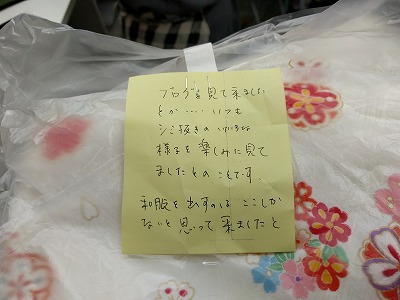 ブログを見て来ました
とか‥‥いつも
シミ抜きのいろいろな
様子を楽しみに見て
ましたとのことです。
和服を出すのは ここしか
ないと思って来ましたと